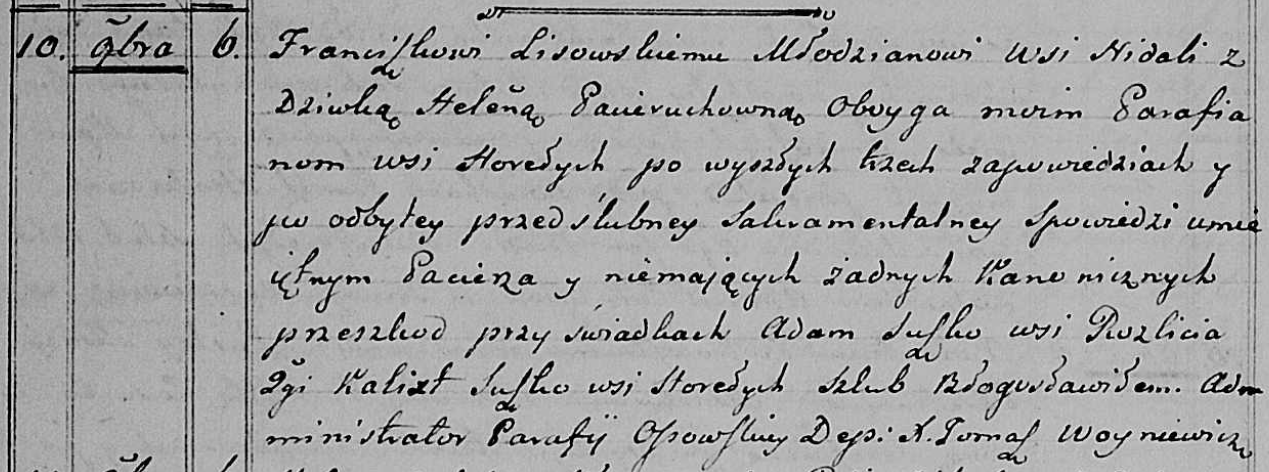 10. 9bra 6. Franciszkowi Lisowskiemu Młodzianowi wsi Nidali z
Dziwką Heleną Pacieruchowną Obvyga moim Parafia
nom wsi Storełych po wyszłych trzech zapowiedziach y
po odbytey przedślubney Sakramentalney Spowiedzi umie
iętnym Pacierza y niemaiących żadnych Kanonicznych
przeszkod przy świadkach Adam Suszko wsi Rozlicia
2gi Kalixt Suszko wsi Storełych szlub Błogusławiłem. Adm
ministrator Parafij Osowskiey Dep: X. Tomasz Woyniewicz